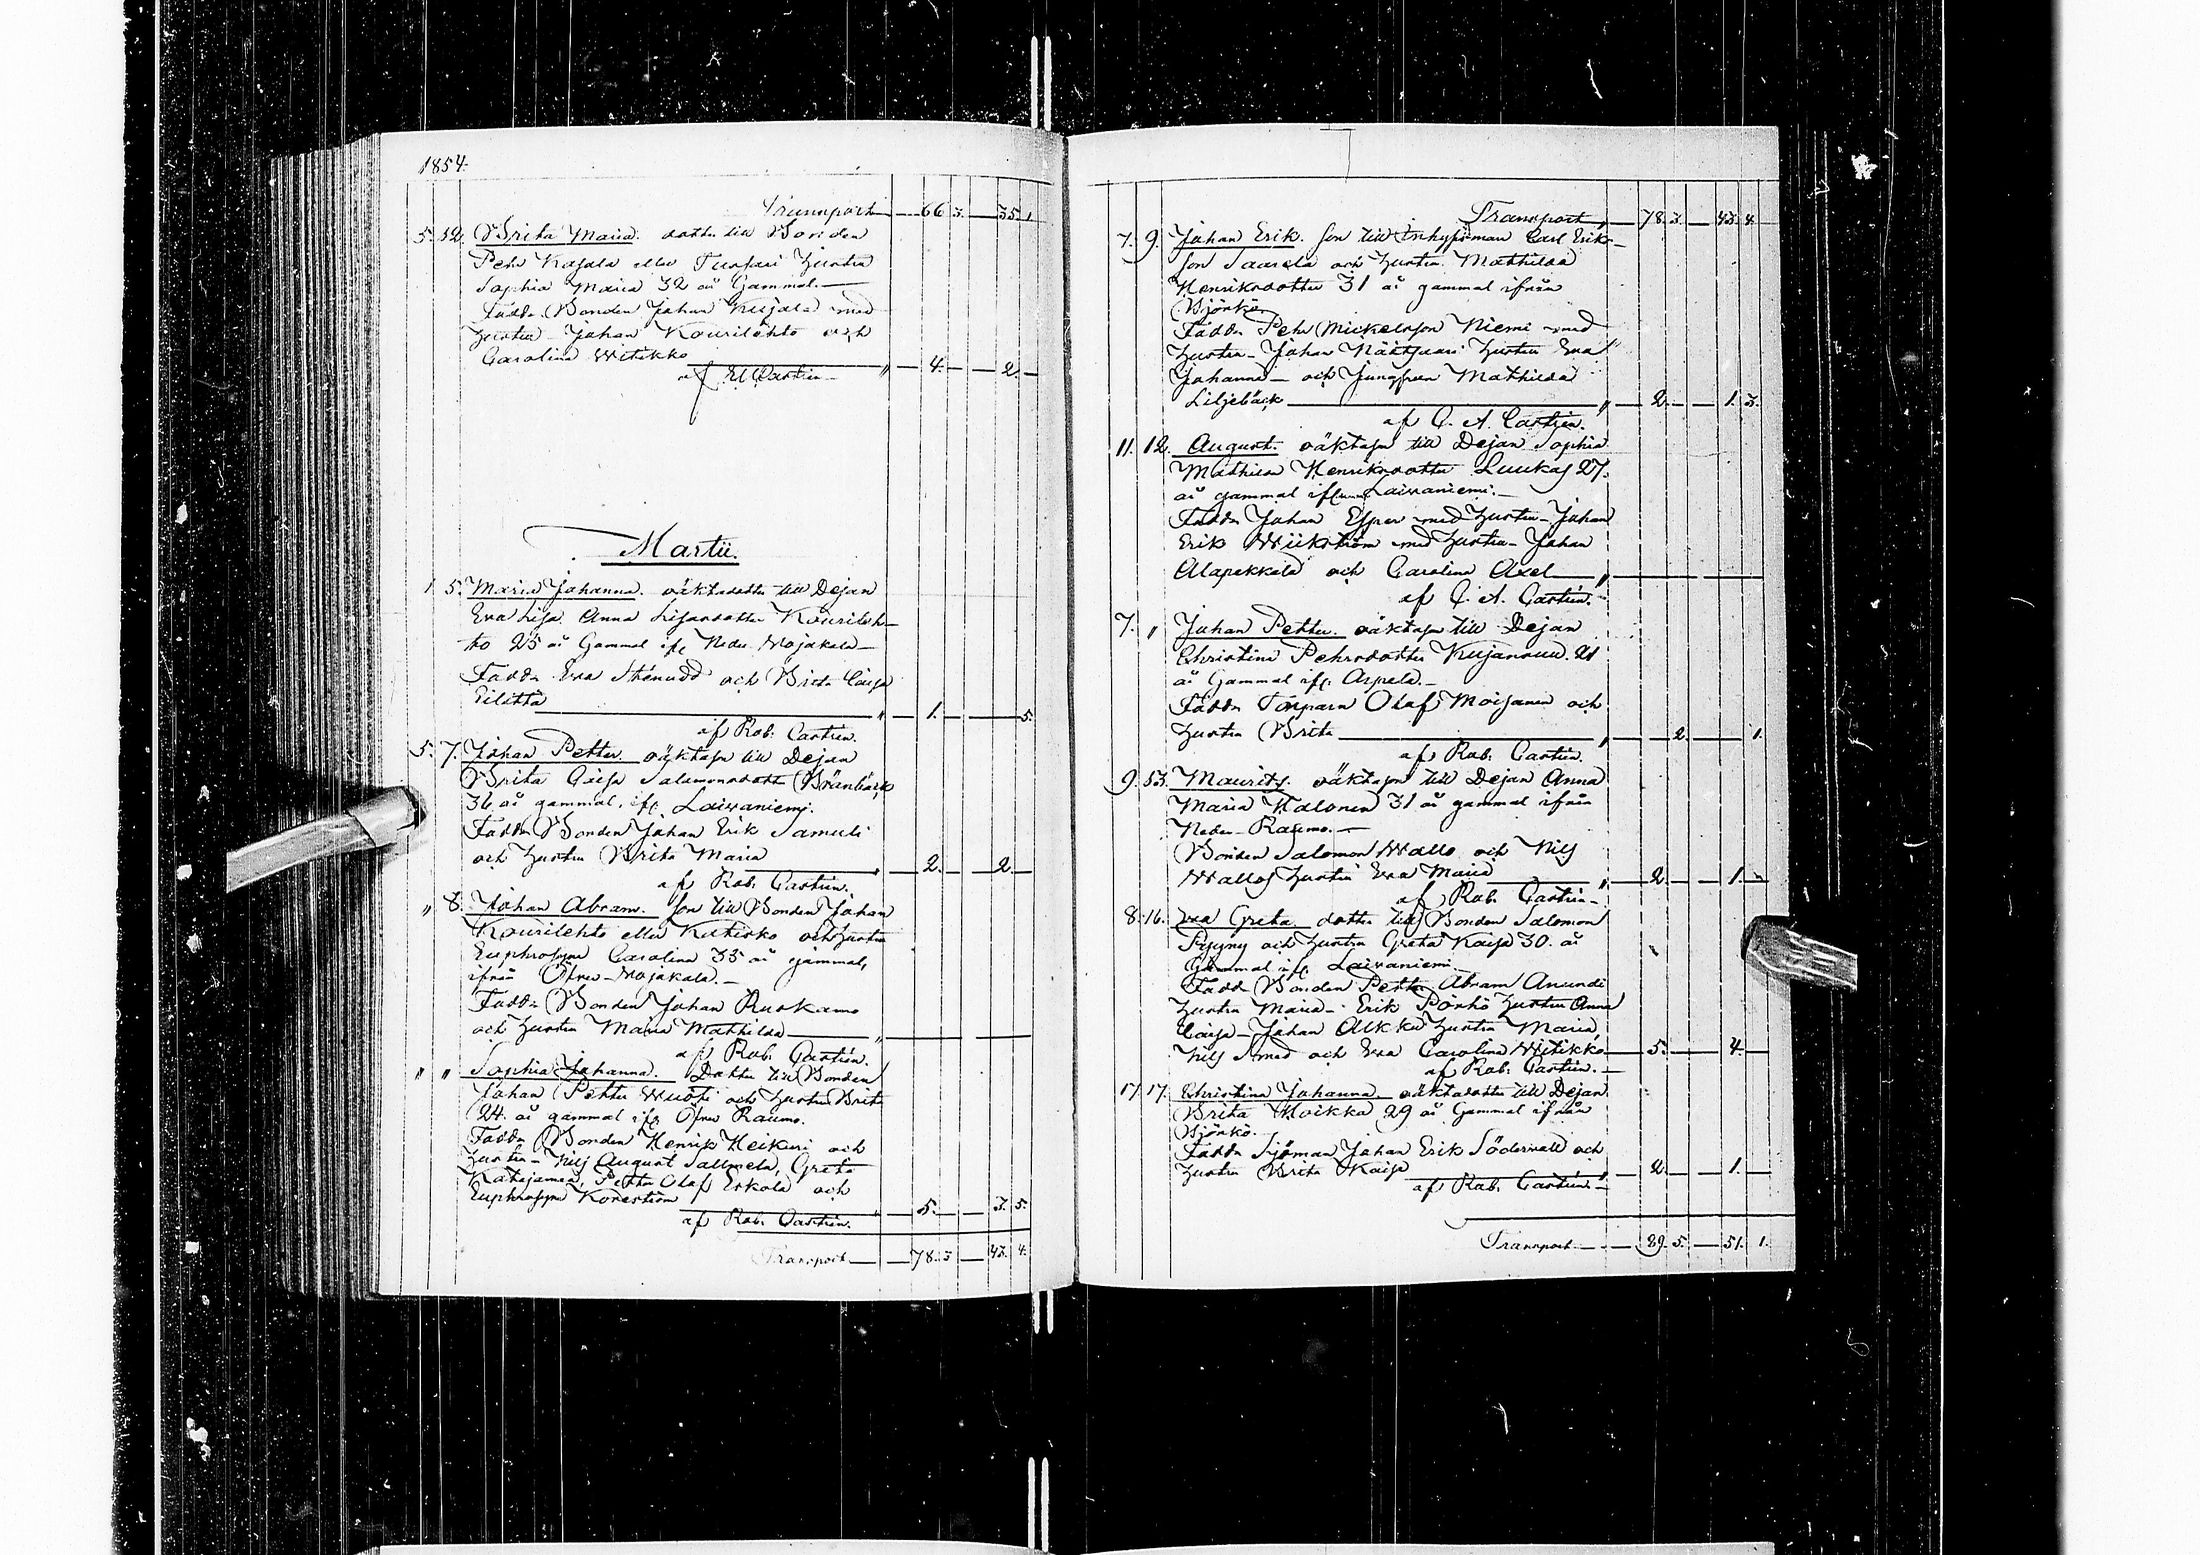 1854.
Transport 66 3. 35. 1
5. 12. Brita Maria. dotter till Bonden
Pehr Kojala eller hustru
Sophia Maria 32 år Gammal.
Faddr. Bonden Johan Kujala med
hustru - Johan Kourilehto och
Carolina Witikko " 4. 2.
af El. Castrén
Martii.
1. 5. Maria Johanna. oäktadotter till Dejan
Eva Lisa Anna Lisasdotter Kourileh-
to 25 år Gammal ifr. Neder Wojakala
Faddr. Eva Sténudd och Brita Caisa
" 1. 5.
af Rob. Castrén.
5. 7. Johan Petter. oäktason till Dejan
Brita Caisa Salomonsdotter Bränbäck
36 år gammal, ifr. Laivaniemi.
Faddr. Bonden Johan Erik Samuli
och hustru Brita Maria " 2. 2.
af Rob. Castrén.
" 8. Johan Abram. son till Bonden Johan
Kourilehto eller och hustru
Euphrosyne Carolina 33 år gammal,
ifrån Öfver-Wojakala.
Faddr. Bonden Johan Ruokamo
och hustru Maria Mathilda "
af Rob. Castrén.
" " Sophia Johanna. Dotter till Bonden
Johan Petter och hustru Brita
24. år gammal ifr. Öfver Raumo.
Faddr. Bonden Henrik Heikuri och
hustru - Nils August Sallmela, Greta
Katajamaa, Petter Olof Erkola och
Euphrosyne Korström " 5. 3. 5.
af Rob. Castrén.
Transport 78. 3 43. 4.
Transport " 78. 3. 43 4.
7. 9. Johan Erik. son till Inhysesman Carl Erik-
son Saarela och hustru Mathilda
Henriksdotter 31 år gammal ifrån
Björkö.
Faddr. Pehr Mickelsson Niemi med
hustru - Johan hustru Eva
Johanna - och Jungfrun Mathilda
Liljebäck " 2. 1. 3.
af C. A. Castrén.
11. 12. August. oäktason till Dejan Sophia
Mathilda Henriksdotter Luukas 27.
år gammal ifrån Laivaniemi.
Faddr. Johan Esper med hustru - Johan
Erik Wiikström med hustru - Johan
Alapekkala och Carolina Axel "
af C. A. Castrén.
7. " Johan Petter. oäktason till Dejan
Christina Pehrsdotter Kujansuu. 21
år Gammal ifr. Arpela.
Faddr. Torparn Olof Moisanen och
hustru Brita " 2. 1.
af Rob. Castrén.
9. 13. Maurits. oäktason till Dejan Anna
Maria Halonen 31 år gammal ifrån
Neder-Raumo.
Bonden Salomon Wallo och Nils
Wallos hustru Eva Maria " 2. 1.
af Rob. Castrén
8. 16. Eva Greta dotter till Bonden Salomon
Pyyny och hustru Greta Kaisa 30. år
Gammal ifr. Laivaniemi
Faddr. Bonden Petter Abram Anundi
hustru Maria - Erik Pörhö hustru Anna
Caisa - Johan Alkku hustru Maria
Nils Smed och Eva Carolina Witikko 5. 4.
af Rob. Castrén.
17. 17. Christina Johanna. oäktadotter till Dejan
Brita Hoikka 29 år Gammal ifrån
Björkö.
Faddr. Sjöman Johan Erik Södervall och
hustru Brita Kaisa " 2. 1.
af Rob. Castrén.
Transport 89. 5. 51. 1.